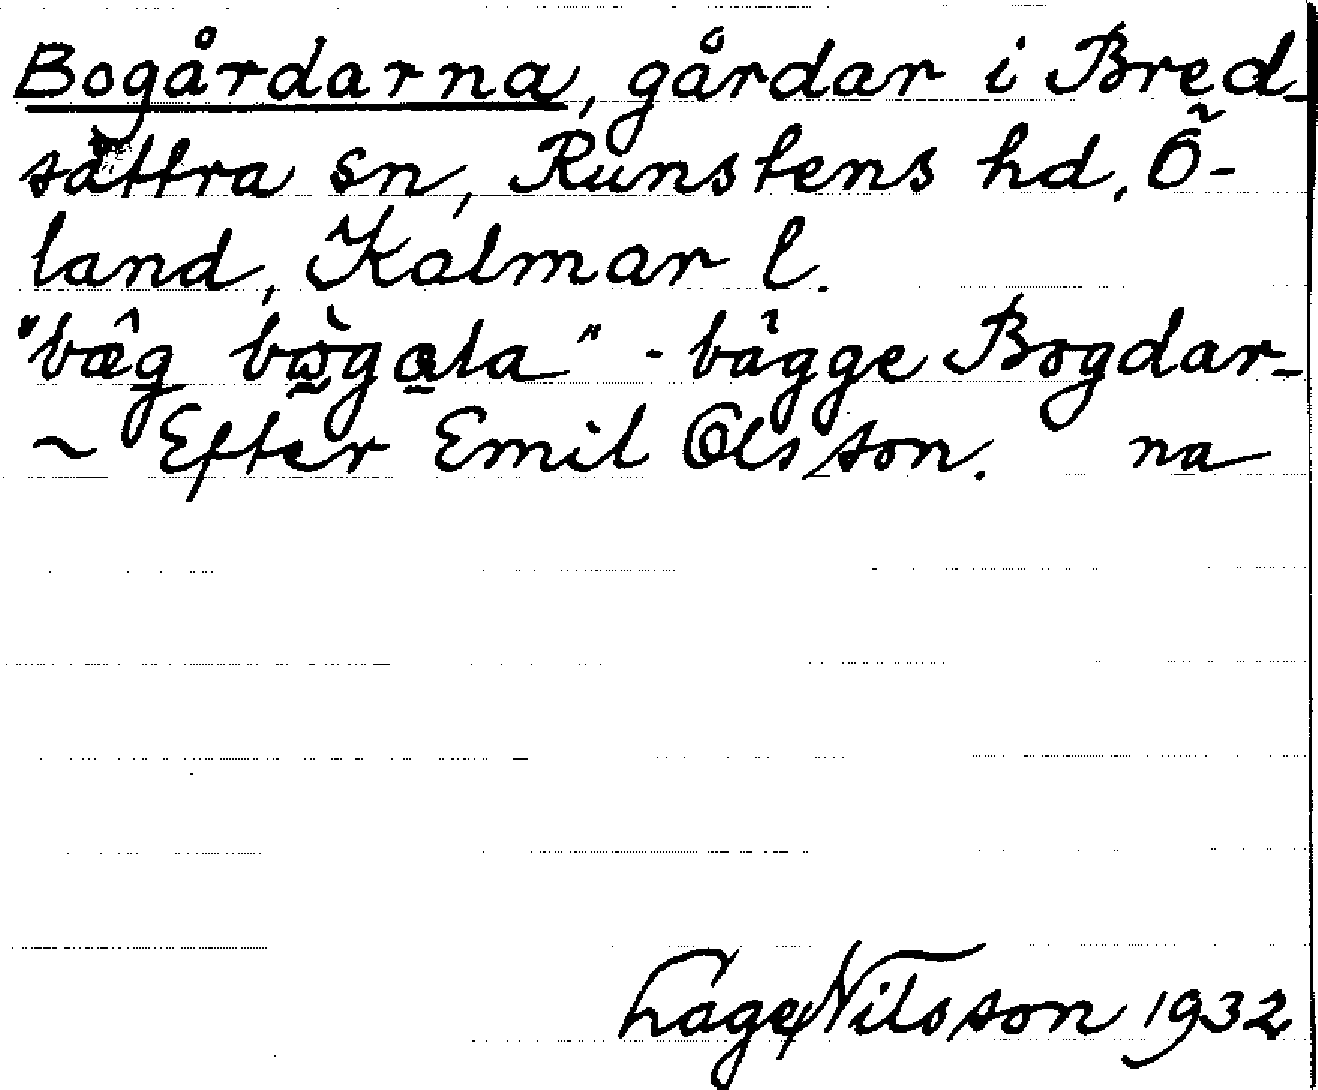 Bogårdarna, gårdar i Bred-
sättra sn, Runstens hd, Ö-
land, Kalmar l.
"bæ̂g bògala" - bägge Bogdar-
~ Efter Emil Olsson. na
Lage Nilsson 1932